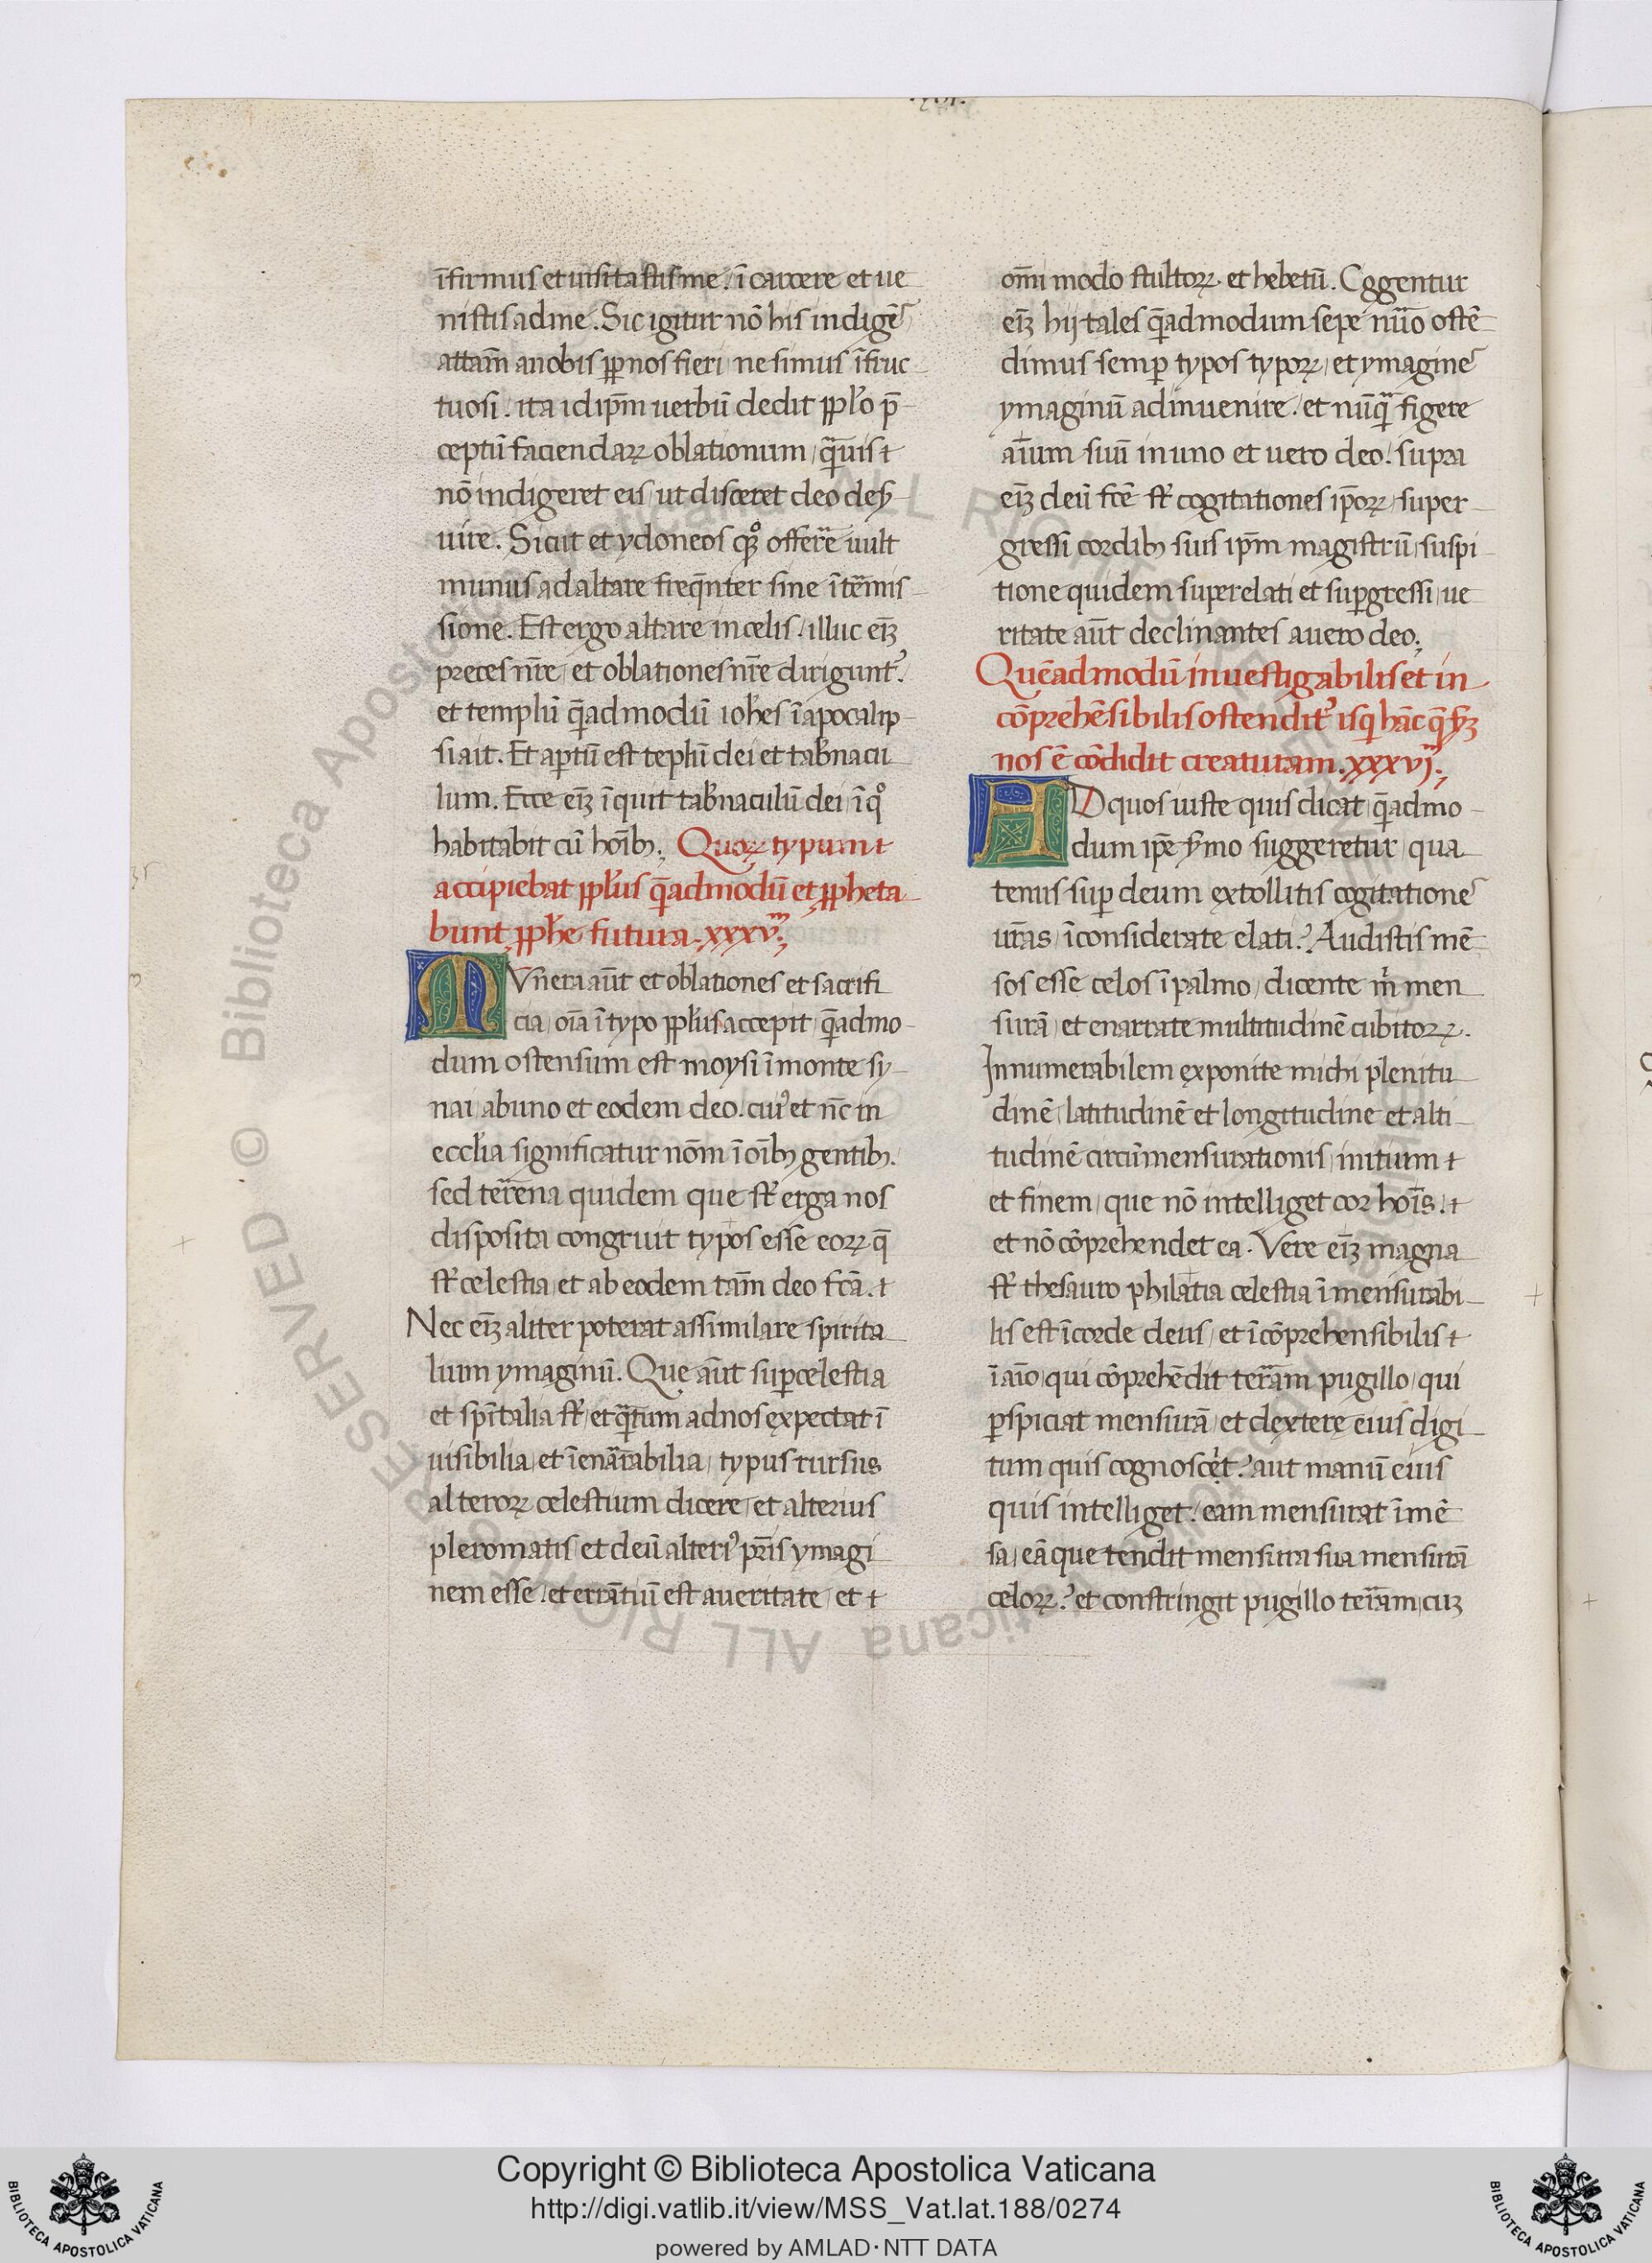 īfirmus et uisitastis me. ī carcere et ue
nistis ad me. Sic igitur nō his indigēs
attam̄ a nobis ꝓp nos fieri, ne simus īfruc-
tuosi. ita id ip̄m uerbū dedit ꝓpl'o p̄-
ceptū faciendaꝝ oblationum, q̄uis t
nō indigeret eis, ut disceret deo des̓-
uire. Sicut et ydoneos qȝ offerre uult
munus ad altare freq̄nter sine īt̄ermis-
sione. Est ergo altare in celis. illuc eīȝ
preces nr̄e, et oblationes nr̄e dirigunt'.
et templū q̄admodū ioh̄es ī apocalip-
si ait. Et aptū est teplū dei et tab̓nacu
lum. Ecce eīȝ īquit tab̓naculū dei, ī qͦ
habitabit cū hoībꝫ. Quoꝝ typum t
accipiebat ꝓpl'us q̄admodū et ꝓpheta
bunt ꝓph̄e futura. xxxv.m;
MVnera aūt et oblationes et sacrifi
cia, oīa ī typo ꝓpl'us accepit, q̄admo-
dum ostensum est moysi ī monte sy-
nai, ab uno et eodem deo. cui' et nc̄ in
eccl'ia significatur nōm ī oībꝫ gentibꝫ.
sed terrena quidem que st̄ erga nos
disposita congruit typos esse eoꝝ q̄
st̄ celestia, et ab eodem tam̄ deo fcā. t
Nec eīȝ aliter poterat assimilare spirita
lium ymaginū. Que aūt supcelestia
et spīritalia st̄, et q̄ntum ad nos expectat ī
uisibilia, et īenarrabilia, typus rursus
alteroꝝ celestium dicere, et alterius
pleromatis, et deū alteri' pr̄is ymagi
nem esse. et errātiū est a ueritate, et t
om̄i modo stultoꝝ et hebetū. Coggentur
eīȝ hij tales q̄admodum sepe nūo ostē
dimus semp typos typoꝝ, et ymagines
ymaginū adinuenire. et nūq̄ figere
aīum suū in uno et uero deo. supra
eīȝ deū fcē st̄ cogitationes ip̄oꝝ, super-
gressi cordibꝫ suis ip̄m magistrū, suspi
tione quidem superelati et supgressi, ue
ritate aūt declinantes a uero deo;
Quēadmodū inuestigabilis et in
cōprehēsibilis ostendit' isq hāc q̄
nos ē cōdidit creaturam. xxxvj.m;
AD quos iuste quis dicat, q̄admo-
dum ip̄e s̓mo suggeretur, qua
tenus sup deum extollitis cogitationes
ur̄as, īconsiderate elati? Audistis mē
sos esse celos ī palmo, dicente m̄ men
surā, et enarrate multitudinē cubitoꝝ.
Innumerabilem exponite michi plenitu
dinē, latitudinē et longitudine et alti-
tudinē circūmensurationis, initium t
et finem, que nō intelliget cor hoīs. t
et nō cōprehendet ea. Vere eīȝ magna
st̄ thesauro philatia celestia īmensurabi
lis est ī corde deus, et īcōprehensibilis t
ī aīo, qui cōprehēdit terram pugillo, qui
pspiciat mensurā, et dextere eius digi
tum quis cognoscet? aut manū eius
quis intelliget. eam mensurat īmē
sa, eā que tendit mensura sua mensurā
celoꝝ? et constringit pugillo terram, cuȝ
Copyright © Biblioteca Apostolica Vaticana
http://digi.vatlib.it/view/MSS_Vat.lat.188/0274
powered by AMLAD·NTT DATA
BIBLIOTECA APOSTOLICA VATICANA
BIBLIOTECA APOSTOLICA VATICANA
© Biblioteca Apostolica Vaticana ALL RIGHTS RESERVED